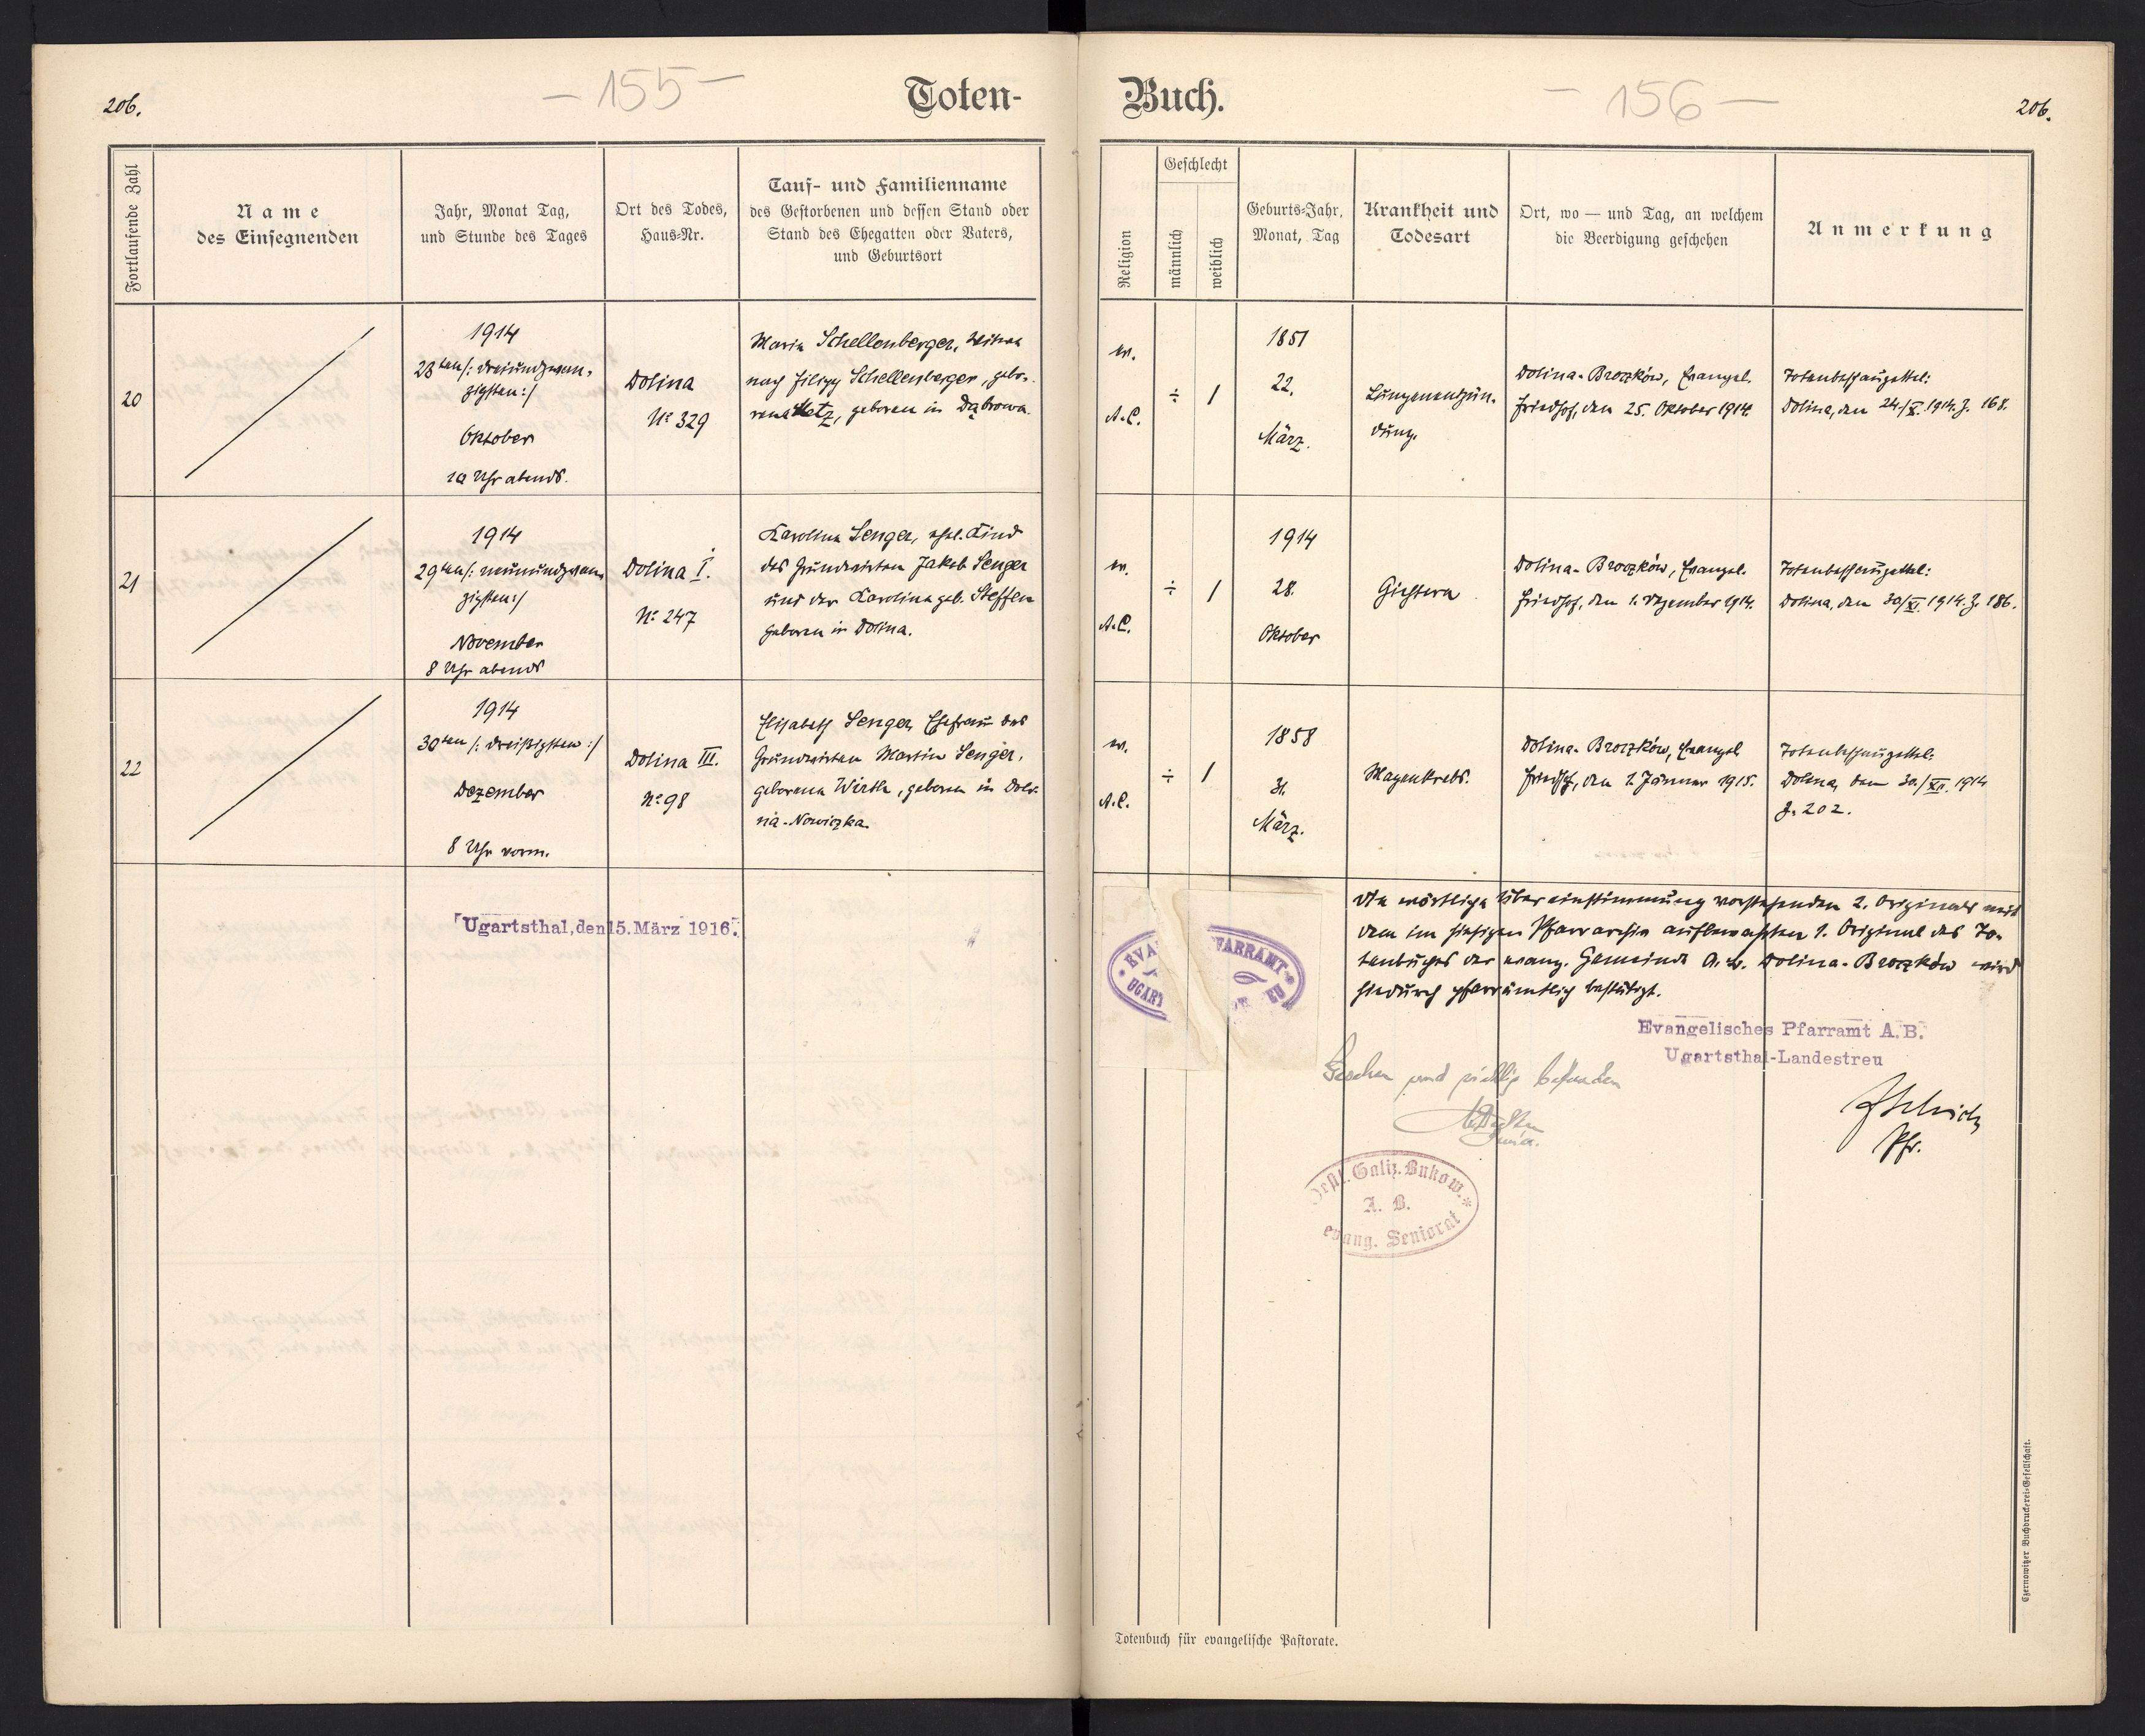 206.
— 155 —
Toten-
Buch.
— 156 —
206.
Fortlaufende Zahl
Name
des Einsegnenden
Jahr, Monat Tag,
und Stunde des Tages
Ort des Todes,
Haus-Nr.
Tauf- und Familienname
des Gestorbenen und dessen Stand oder
Stand des Ehegatten oder Vaters,
und Geburtsort
Religion
Geschlecht
männlich
weiblich
Geburts-Jahr,
Monat, Tag
Krankheit und
Todesart
Ort, wo — und Tag, an welchem
die Beerdigung geschehen
Anmerkung
20
1914
23ten /: dreiundzwan-
zigsten :/
Oktober
10 Uhr abends.
Dolina
No 329
Maria Schellenberger, Witwe
nach Filipp Schellenberger, gebo-
rene Metz, geboren in Dąbrowa.
ev.
A.C.
÷
/
1851
22.
März.
Lungenentzün-
dung.
Dolina-Broczków, Evangel.
Friedhof, den 25. Oktober 1914.
Totenbeschauzettel:
Dolina, den 24./X. 1914. Z. 168.
21
1914
29ten /: neunundzwan-
zigsten :/
November
8 Uhr abends
Dolina I.
No 247
Karolina Senger, ehel. Kind
des Grundwirten Jakob Senger
und der Karolina geb. Steffen
geboren in Dolina.
ev.
A.C.
÷
/
1914
28.
Oktober
Gichtern
Dolina-Broczków, Evangel.
Friedhof, den 1. Dezember 1914.
Totenbeschauzettel:
Dolina, den 30/XI. 1914. Z. 186.
22
1914
30ten /: dreißigsten :/
Dezember
8 Uhr vorm.
Dolina III.
No 98
Elisabeth Senger, Ehefrau des
Grundwirten Martin Senger,
geborene Wirth, geboren in Dol-
nia-Nowiczka.
ev.
A.C.
÷
/
1858
31.
März.
Magenkrebs.
Dolina-Broczków, Evangel
Friedhof, den 1. Jänner 1915.
Totenbeschauzettel:
Dolina, den 30./XII. 1914
Z. 202.
Ugartsthal, den 15. März 1916.
Die wörtliche Übereinstimmung vorstehenden 2. Originals mit
dem im hiesigen Pfarrarchiv aufbewahrten 1. Original des To-
tenbuches der evang. Gemeinde A. B. Dolina-Broczków wird
hiedurch pfarrämtlich bestätigt.
EVA
FARRAMT
UGART
EU
Evangelisches Pfarramt A.B.
Ugartsthal-Landestreu
Gesehen und richtig befunden
Pfr.
Galiz. Bukow.
A. B.
evang. Seniorat
Totenbuch für evangelische Pastorate.
Czernowitzer Buchdruckerei-Gesellschaft.